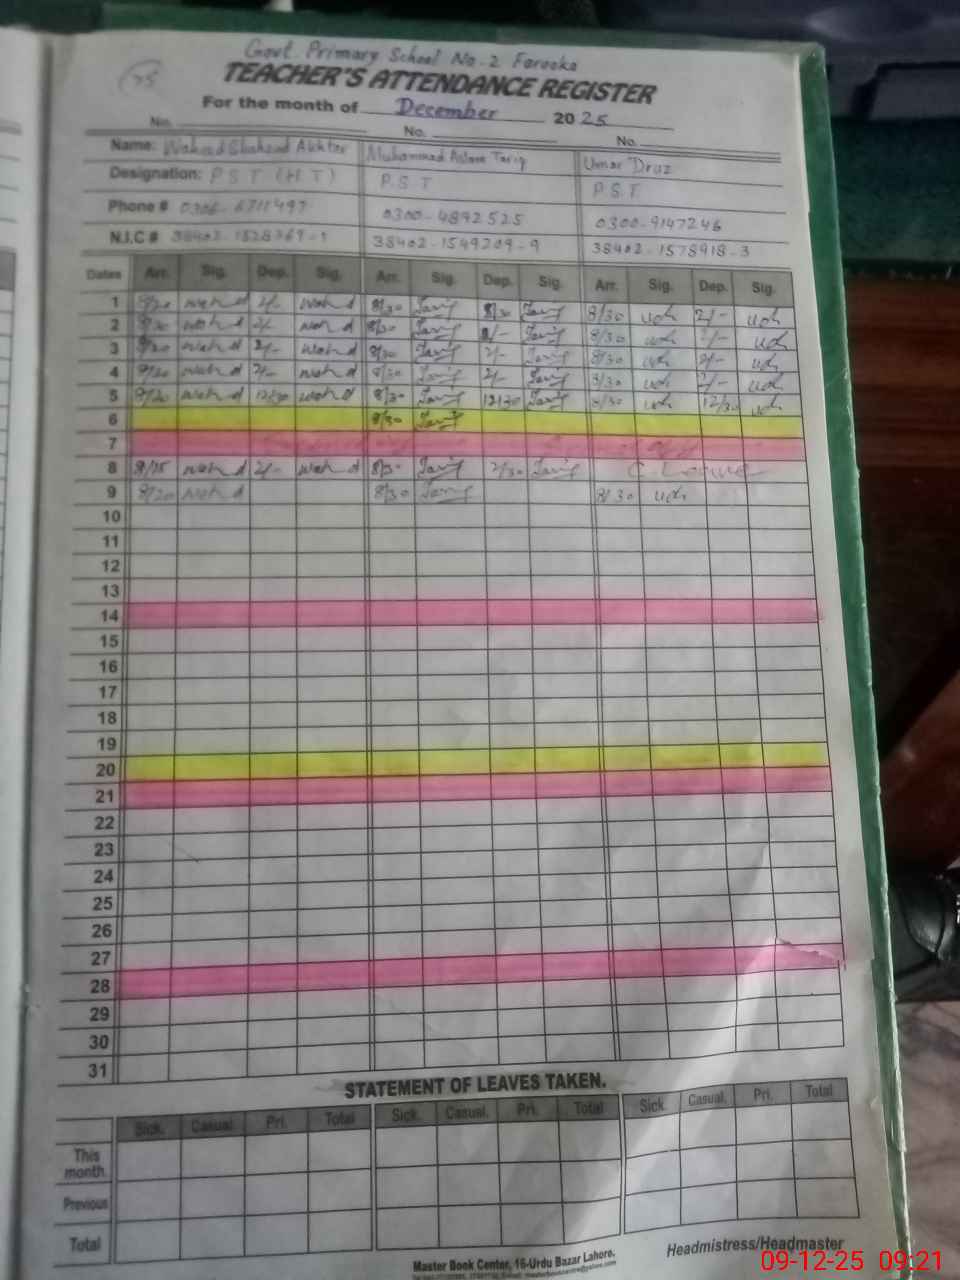 Govt. Primary School No. 2 Farooka
TEACHER'S ATTENDANCE REGISTER
For the month of December 2025
No. No. No.
Name: Waheed Shahzad Akhter Muhammad Aslam Tariq Umar Draz
Designation: P.S.T (H.T) P.S.T P.S.T
Phone # 0306-6711497 0300-4892525 0300-9147246
N.I.C # 38402-1528369-1 38402-1549209-9 38402-1578918-3
Dates Arr. Sig. Dep. Sig. Arr. Sig. Dep. Sig. Arr. Sig. Dep. Sig.
1 8/20 2/- 8/30 Tariq 8/30 Tariq 8/30 2/-
2 8/20 2/- 8/30 Tariq 2/- Tariq 8/30 2/-
3 8/20 2/- 8/30 Tariq 2/- Tariq 8/30 2/-
4 8/20 2/- 8/30 Tariq 2/- Tariq 8/30 2/-
5 8/20 12/30 8/30 Tariq 12/30 Tariq 8/30 12/30
6 8/30 Tariq
7
8 8/15 2/- 8/30 Tariq 2/30 Tariq C. Leave
9 8/20 8/30 Tariq 8/30
10
11
12
13
14
15
16
17
18
19
20
21
22
23
24
25
26
27
28
29
30
31
STATEMENT OF LEAVES TAKEN.
Sick. Casual. Pri. Total Sick. Casual. Pri. Total Sick. Casual. Pri. Total
This
month.
Previous
Total
Master Book Center, 16-Urdu Bazar Lahore.
Headmistress/Headmaster
09-12-25 09:21